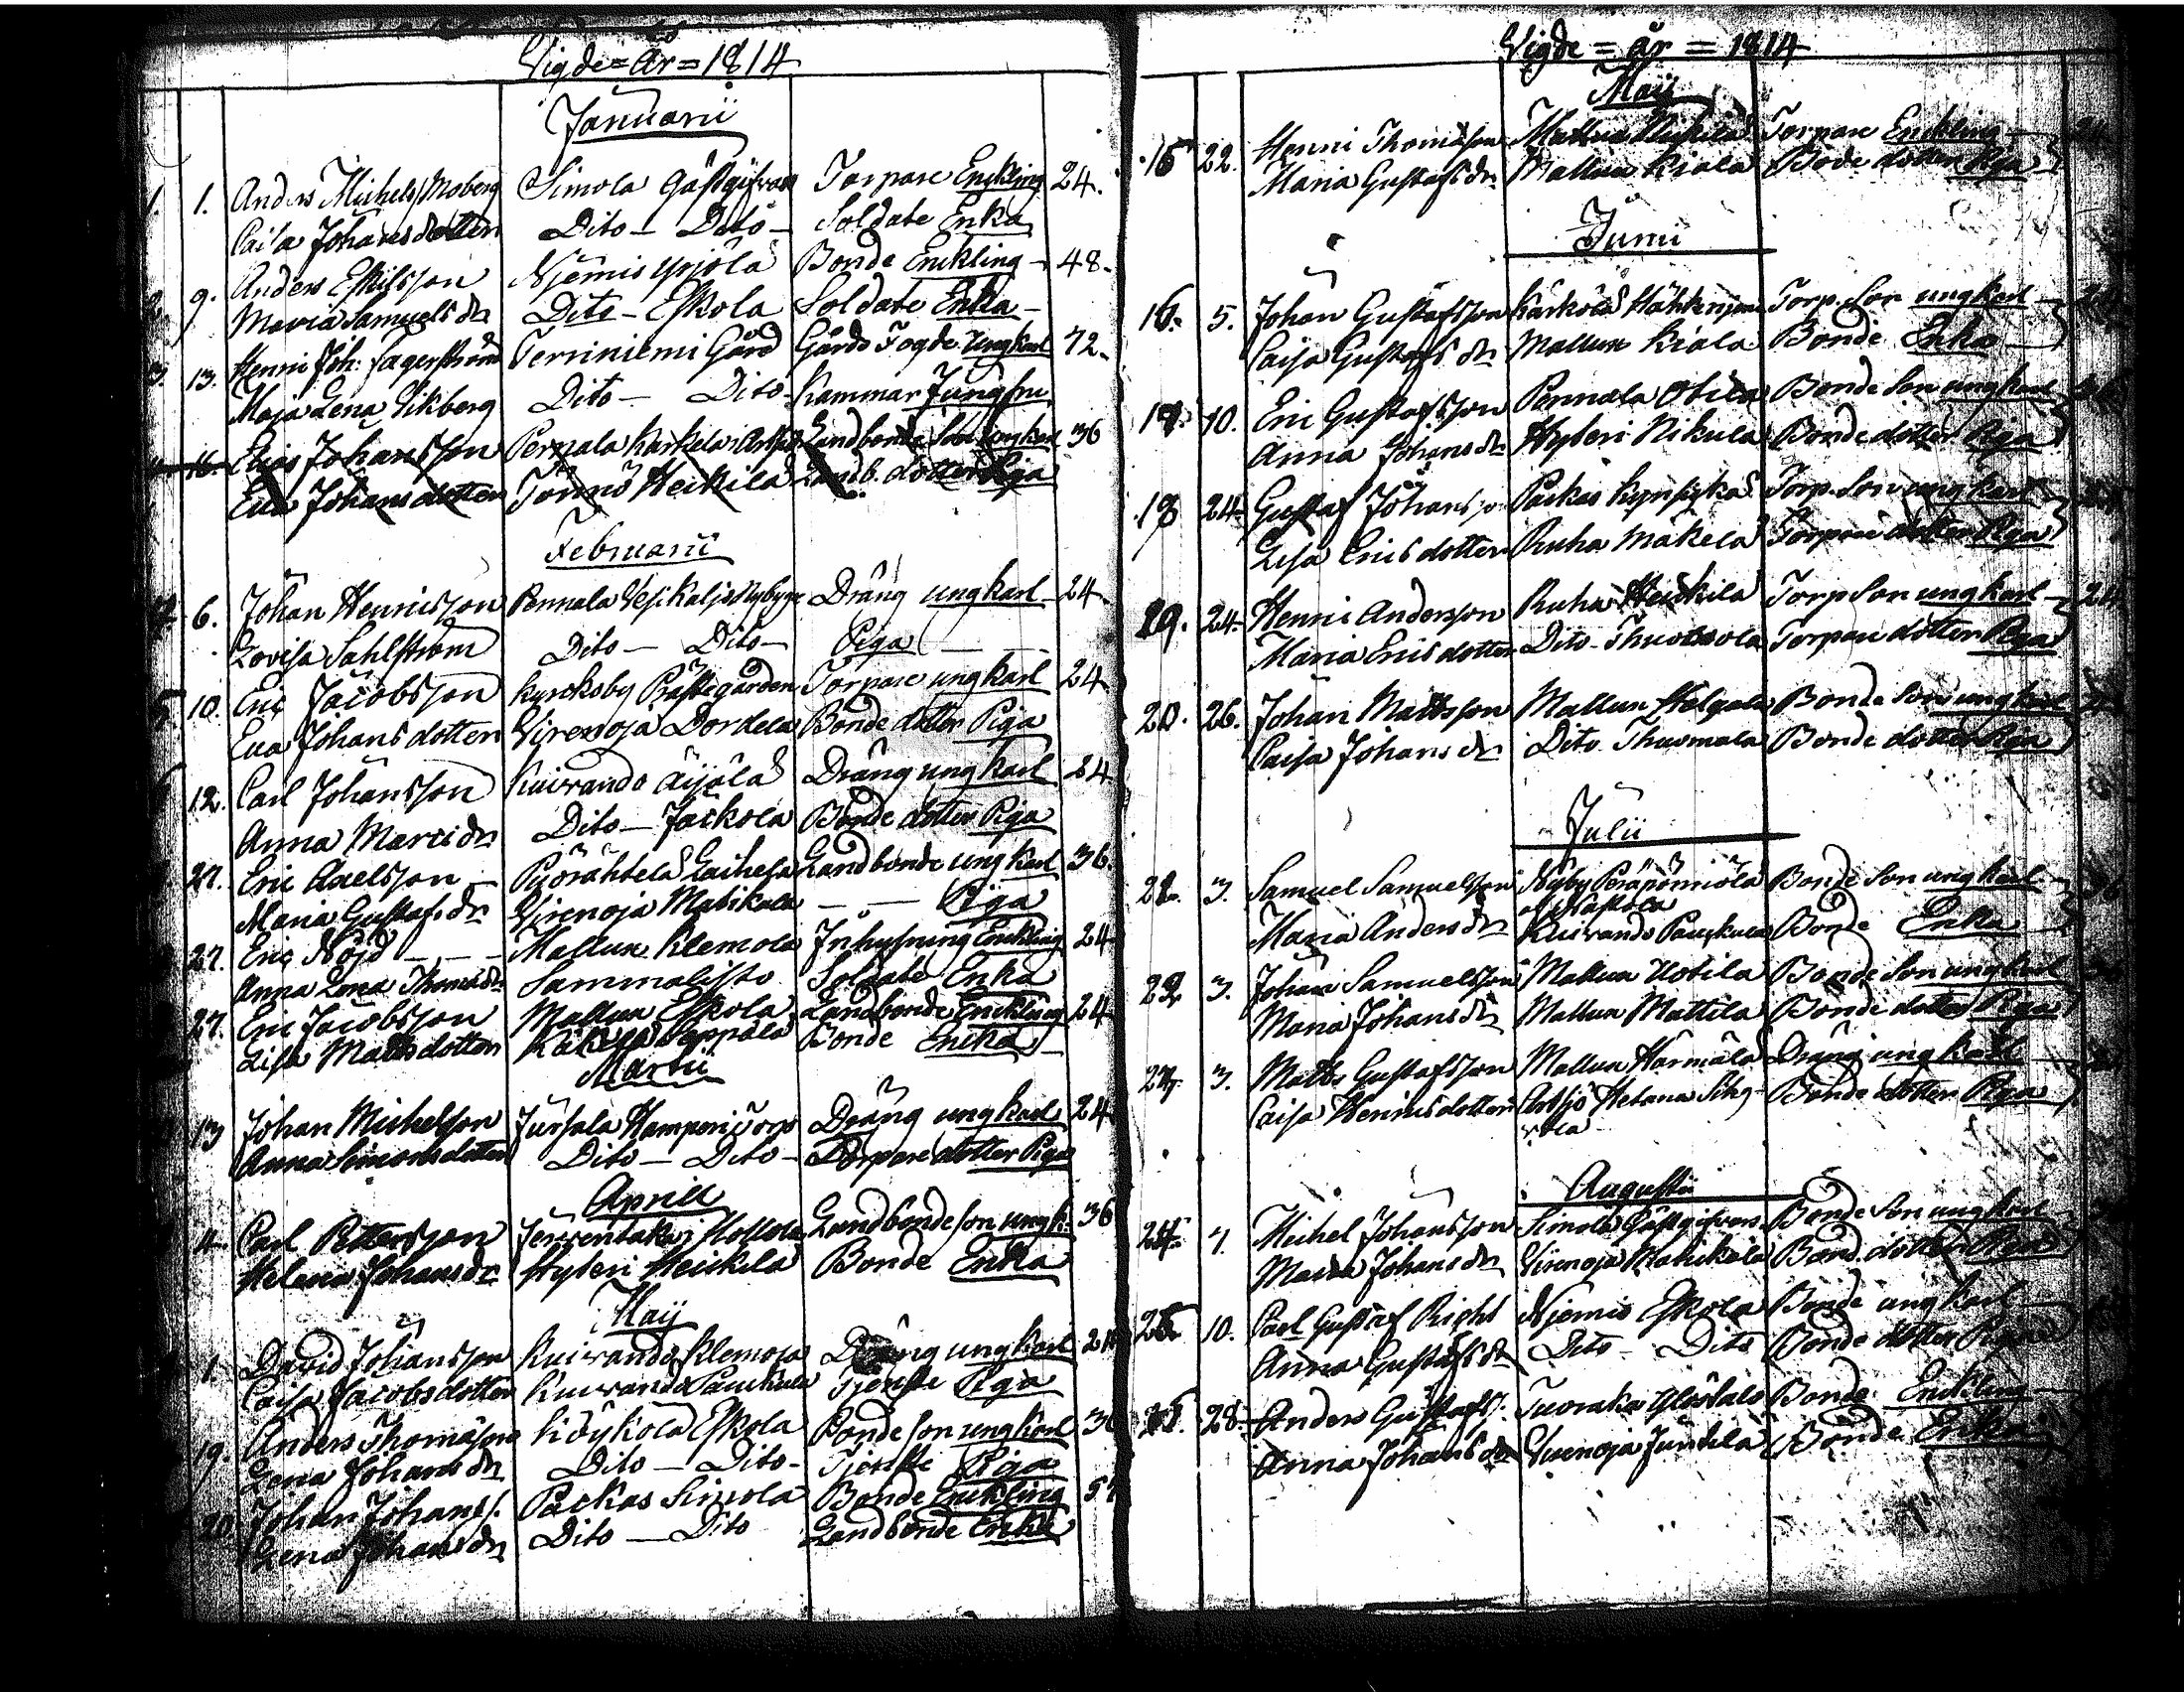 Vigde = År = 1814
Januarii
1. 1. Anders Michels. Moberg Simola Gästgifvar Torpare Enckling 24.
Caisa Johansdotter Dito — Dito — Soldate Enka
2. 9. Anders Eskilsson Njemis Yrjölä Bonde Enckling — 48.
Maria Samuels dr Dito — Eskola Soldate Enka —
3. 13. Henric Joh: Fagerström Terriniemi Gård Gårds Fogde Ungkarl 72.
Maja Lena Vikberg Dito — Dito Kammar Jungfru
16. Elias Johansson Pernala Karkela i Landbonde Son Ungkarl 36
Eva Johansdotter Heikila Landb. dotter Piga
Februarii
4. 6. Johan Henricsson Pennala Vesikaljo Nybygg Dräng ungkarl — 24.
Lovisa Sahlström Dito — Dito — Piga
5. 10. Eric Jacobsson Kyrckoby Prästegården Torpare ungkarl 24.
Eva Johansdotter Virenoja Dordela Bonde dotter Piga
12. Carl Johansson Kuivando Äijälä Dräng ungkarl 24.
Anna Marcidr Dito — Jackola Bonde dotter Piga
27. Eric Axelsson — Pyörähtelä Laihela Landbonde ungkarl 36.
Maria Gustafs dr Virenoja Matikala — — Piga
27. Eric Nöjd — — Mallun Klemola Inhysning Enckling 24
Anna Lena Thomasdr Sammalisto Soldate Enka
27. Eric Jacobsson Mallun Eskola Landbonde Enckling 24
Lisa Mattsdotter Seppälä Bonde Encka —
Martii
13 Johan Michelsson Jursala Hamperi Torp Dräng ungkarl 24
Anna Simonsdotter Dito — Dito — Torpare dotter Piga
Aprill
4. Carl Pettersson i Hollola Landbonde son ungk. 36
Helena Johansdr Hyteri Heickila Bonde Encka
Maij
1. David Johansson Kuivando Klemola Dräng ungkarl 24
Caisa Jacobsdotter Kuivando Pauckula Tjenste Piga
19. Anders Thomasson Köykölä Eskola Bonde son ungkarl 36
Lena Johansdr Dito — Dito — Tjenste Piga
20 Johan Johans s. Packas Simola Bonde Enckling
Lena Johansdr Dito — Dito Landbonde Enka
Vigde = år = 1814
Maij
15 22. Henric Thomasson Mallun Torpare Enckling — 24
Maria Gustafs dr Mallun Kiala Bode dotter Piga
Junii
16. 5. Johan Gustafsson Kärkölä Torp. Son ungkarl
Caisa Gustafs dr Mallun Kiala Bonde Enka —
17. 10. Eric Gustafsson Pennala Otila Bonde Son ungkarl 36
Anna Johansdr Hyteri Nikula Bonde dotter Piga
18 24 Gustaf Johansson Packas Torp. Son ungkarl
Lisa Ericsdotter Ruha Mäkelä Torpare dotter Piga
19. 24 Henric Andersson Ruha Heickila Torp Son ungkarl — 24
Maria Ericsdotter Dito — Thuomola Torpare dotter Piga
20. 26. Johan Mattsson Mallun Helgala Bonde Son ungkarl
Caisa Johansdr Dito Thuomala Bonde dotter Piga
Julii
21. 3. Samuel Samuelsson Nyby Bonde Son ungkarl
af Nastola
Maria Andersdr Kuivando Pauckula Bonde Enka
22. 3. Johan Samuelsson Mallun Uotila Bonde Son ungkarl
Maria Johansdr Mallun Mattila Bonde dotter Piga
3. Matts Gustafsson Mallun Härmälä Dräng ungkarl
Caisa Henricsdotter Artjö Bonde dotter Piga
Augustii
24. 7. Michel Johansson Simola Gästgifvars Bonde Son ungkarl
Maria Johansdr Virenoja Matikala Bond. dotter Piga
25 10. Carl Gustaf Right Njemis Eskola Bonde ungkarl
Anna Gustafs dr Dito — Dito Bonde dotter Piga
26. 28. Anders Gustafs: Tuoraka Bonde Enckling
Anna Johansdr Virenoja Juntila Bonde Enka